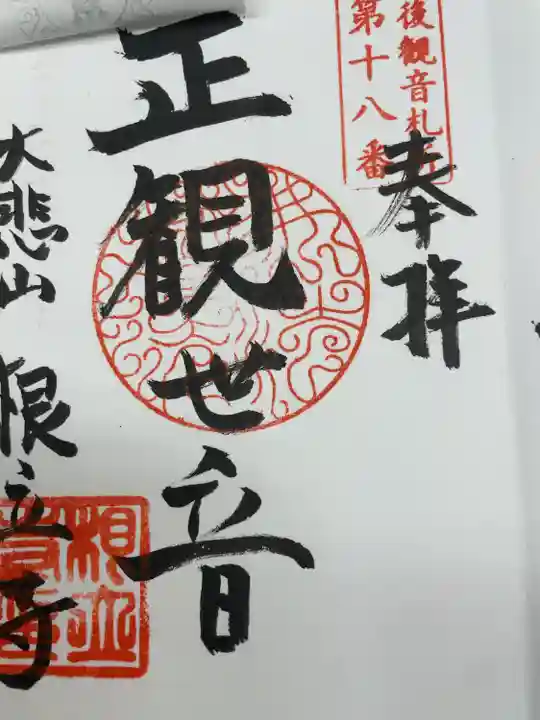 後観音札所
第十八番
奉拝
正観世音
大悲山 根立寺